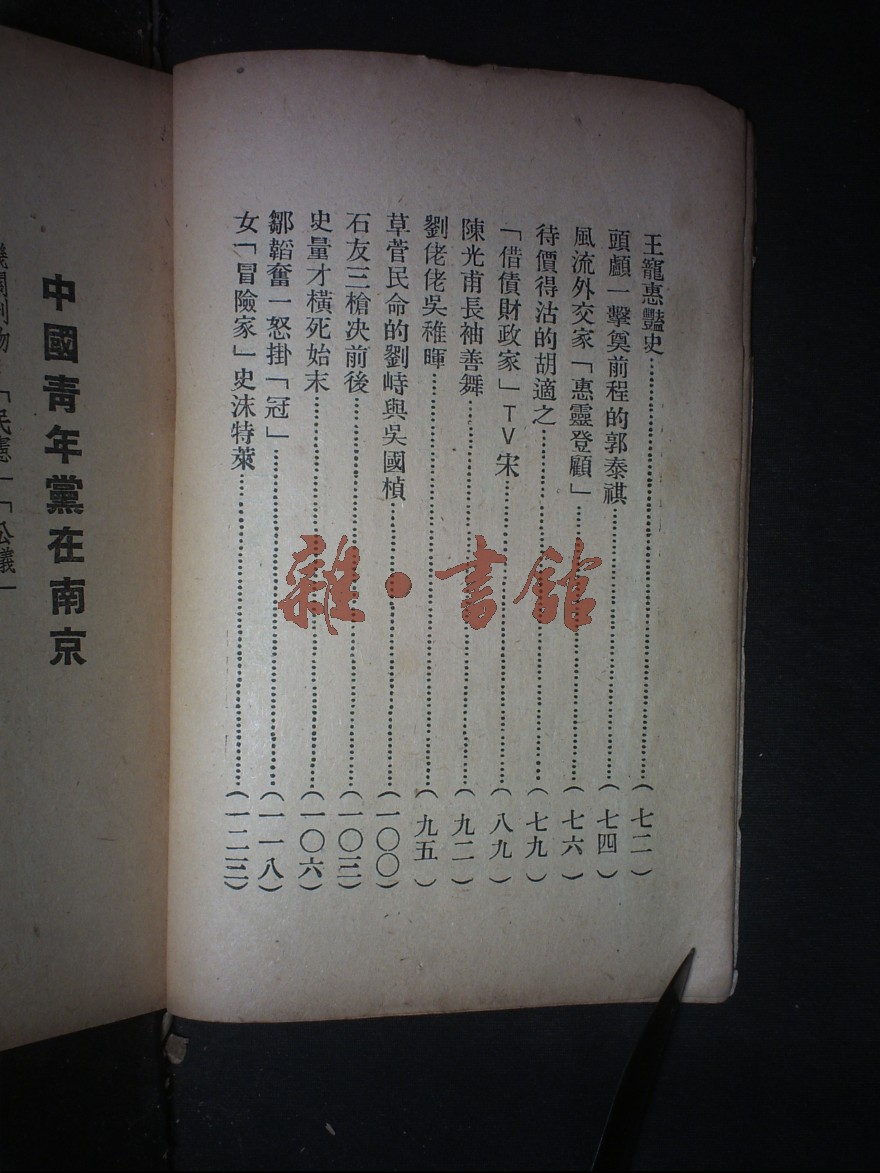 王寵惠豔史⋯⋯⋯⋯⋯⋯(七二)
頭顱一擊奠前程的郭泰祺⋯⋯⋯⋯⋯⋯(七四)
風流外交家「惠靈登顧」⋯⋯⋯⋯⋯⋯(七六)
待價得沽的胡適之⋯⋯⋯⋯⋯⋯(七九)
「借債財政家」TV宋⋯⋯⋯⋯⋯⋯(八九)
陳光甫長袖善舞⋯⋯⋯⋯⋯⋯(九二)
劉佬佬吳稚暉⋯⋯⋯⋯⋯⋯(九五)
草菅民命的劉峙與吳國楨⋯⋯⋯⋯⋯⋯(一〇〇)
石友三槍决前後⋯⋯⋯⋯⋯⋯(一〇三)
史量才橫死始末⋯⋯⋯⋯⋯⋯(一〇六)
鄒韜奮一怒掛「冠」⋯⋯⋯⋯⋯⋯(一一八)
女「冒險家」史沫特萊⋯⋯⋯⋯⋯⋯(一二三)
中國青年黨在南京
「民憲」「公議」
雜·書館